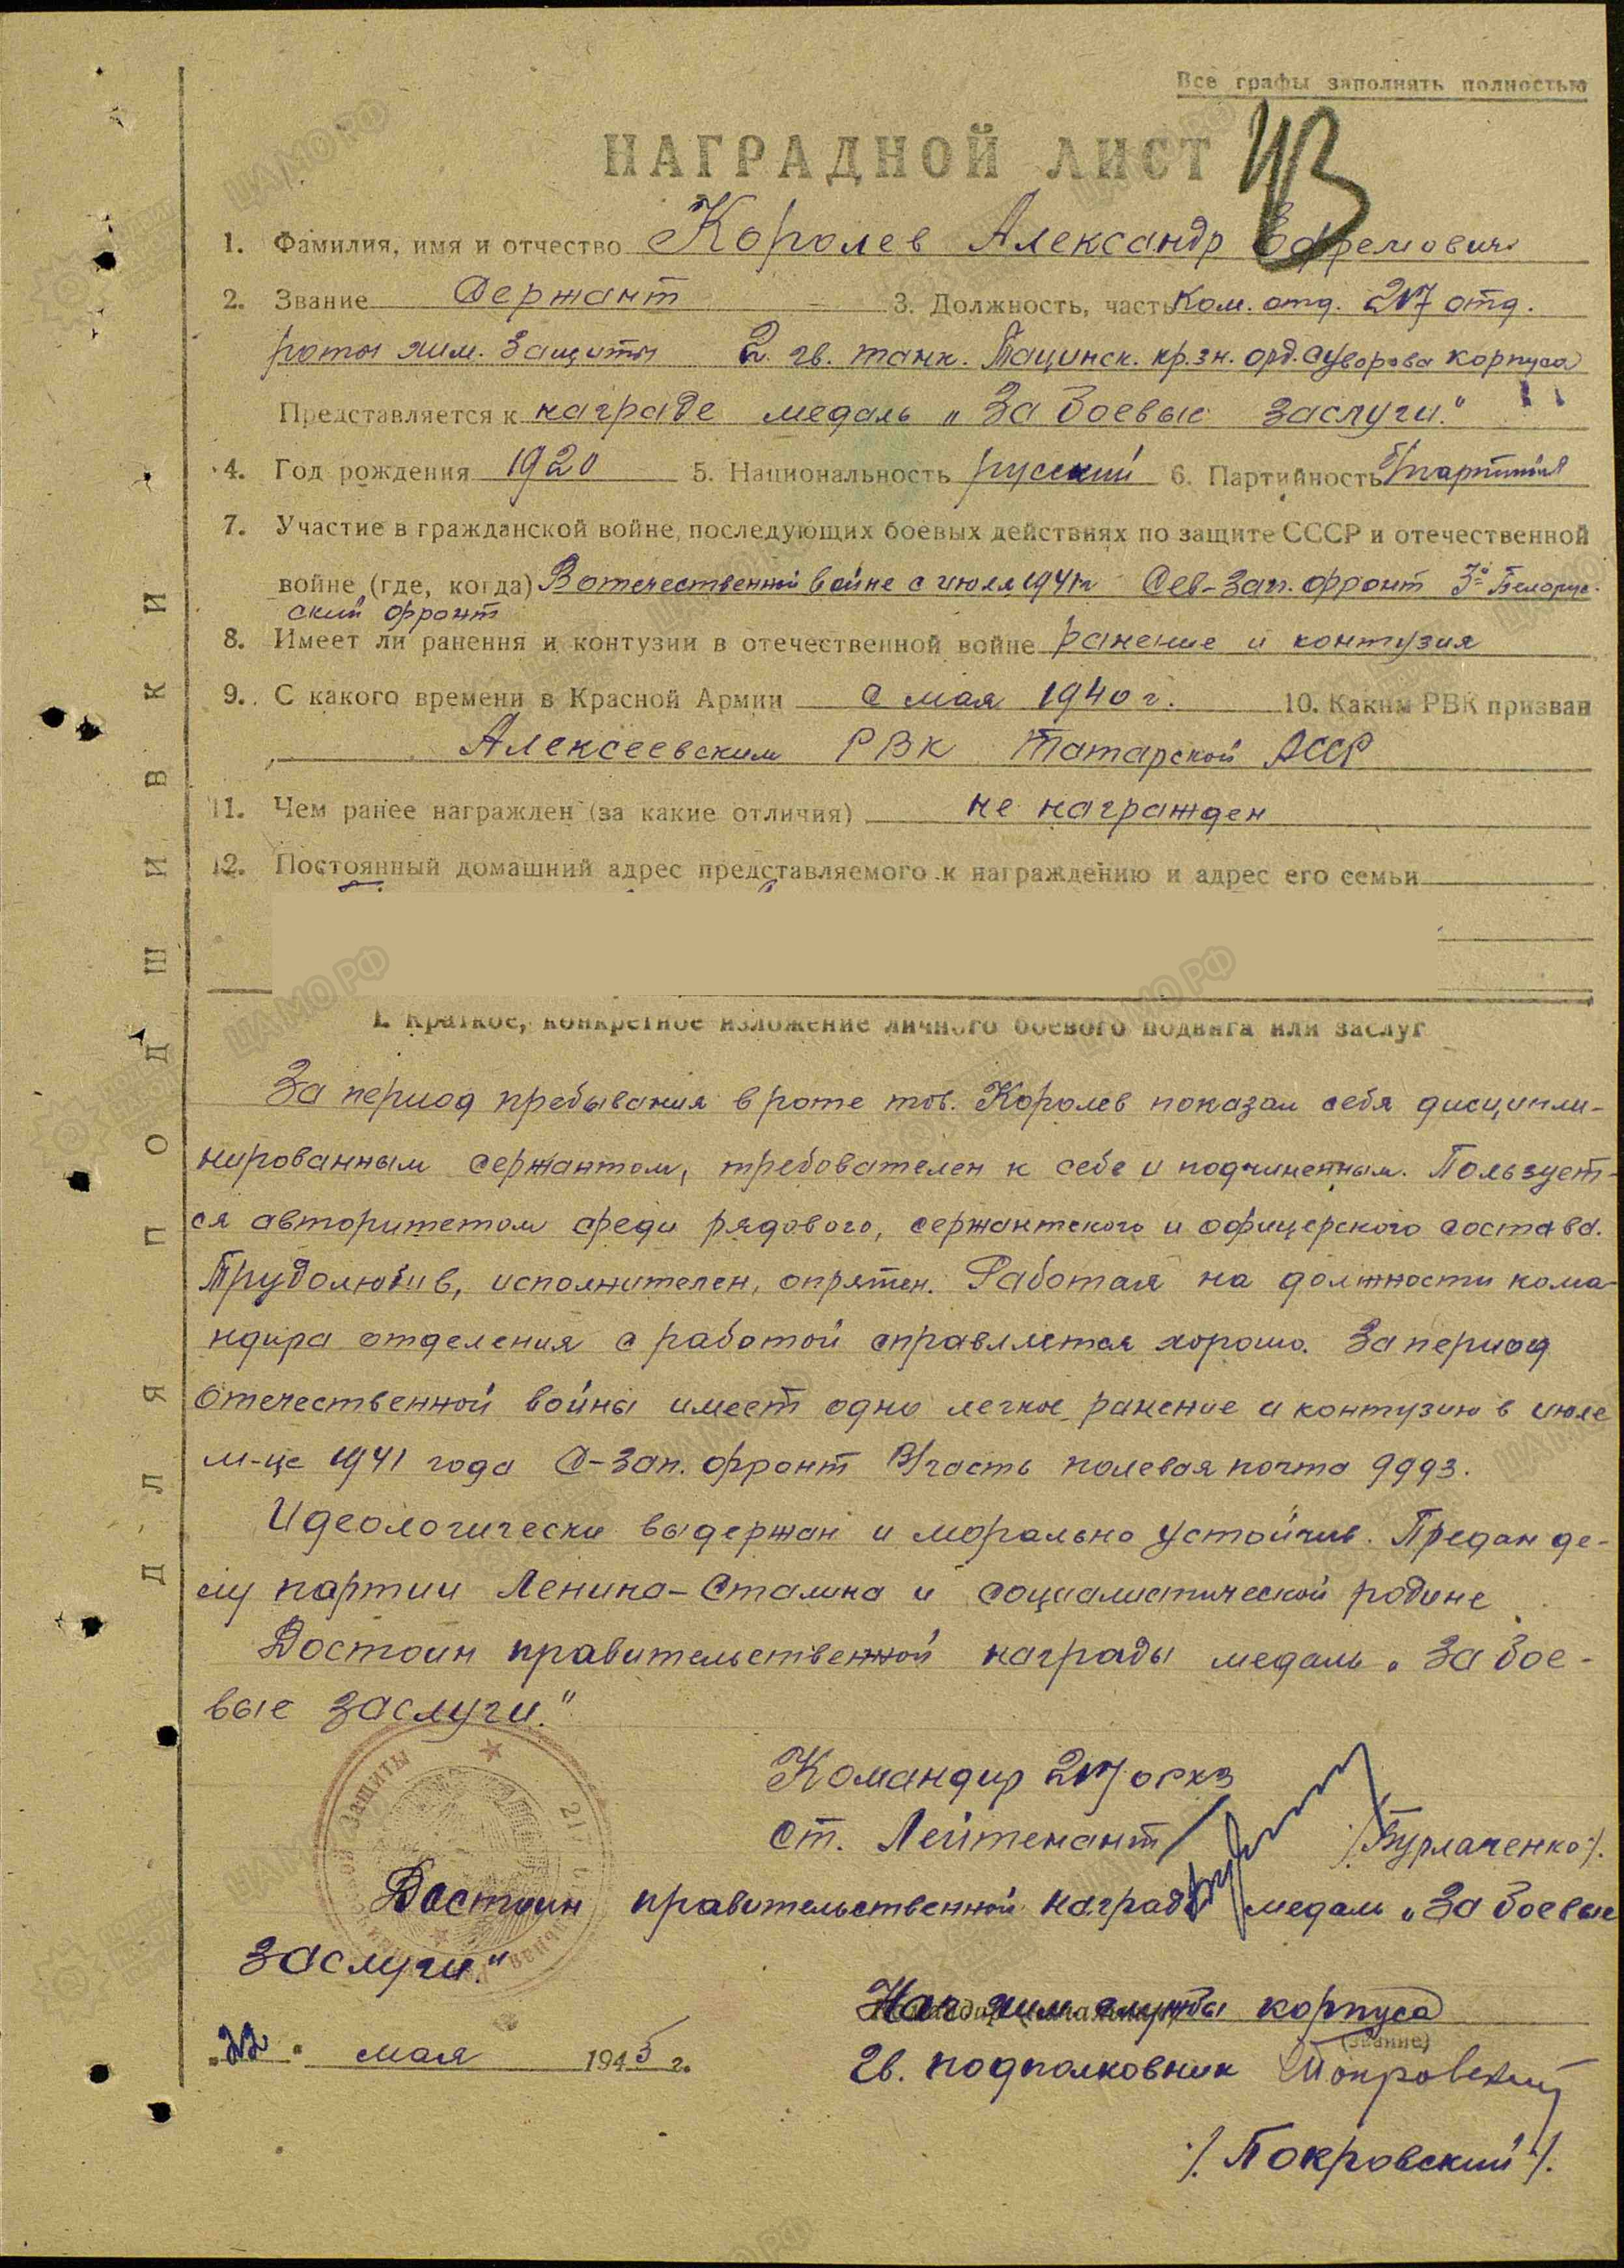 Все графы заполнять полностью
НАГРАДНОЙ ЛИСТ
1. Фамилия, имя и отчество Королев Александр Ефремович
2. Звание Сержант 3. Должность, часть Ком. отд. 217 отд.
роты хим. защиты 2 гв. танк. Тацинск. кр.зн. орд. Суворова корпуса
Представляется к награде медаль „За боевые заслуги."
4. Год рождения 1920 5. Национальность русский 6. Партийность
7. Участие в гражданской войне, последующих боевых действиях по защите СССР и отечественной
войне (где, когда) В отечественной войне с июля 1941г Сев-Зап. фронт 3й Белорус-
ский фронт
8. Имеет ли ранения и контузии в отечественной войне ранение и контузия
9. С какого времени в Красной Армии с мая 1940 г. 10. Каким РВК призван
Алексеевским РВК Татарской АССР
11. Чем ранее награжден (за какие отличия) не награжден
12. Постоянный домашний адрес представляемого к награждению и адрес его семьи
I. Краткое, конкретное изложение личного боевого подвига или заслуг
За период пребывания в роте тов. Королев показал себя дисципли-
нированным сержантом, требователен к себе и подчиненным. Пользует-
ся авторитетом среди рядового, сержантского и офицерского состава.
Трудолюбив, исполнителен, опрятен. Работая на должности кома-
ндира отделения с работой справляется хорошо. За период
Отечественной войны имеет одно легкое ранение и контузию в июле
м-це 1941 года С-Зап. фронт В/часть полевая почта 9993.
Идеологически выдержан и морально устойчив. Предан де-
лу партии Ленина-Сталина и социалистической родине
Достоин правительственной награды медаль „За бое-
вые заслуги."
Командир 217 орхз
Ст. Лейтенант /Бурлаченко/.
Достоин правительственной награды медаль „За боевые
заслуги."
Нач хим службы корпуса
(звание)
Гв. подполковник Покровский
/Покровский/.
„22" мая 1945 г.
ДЛЯ ПОДШИВКИ
ЦАМО РФ